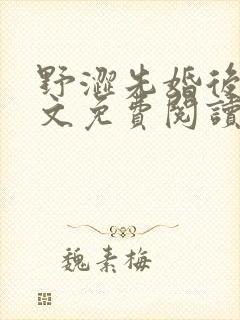 野澀先婚後
文免費閱讀
魏素梅